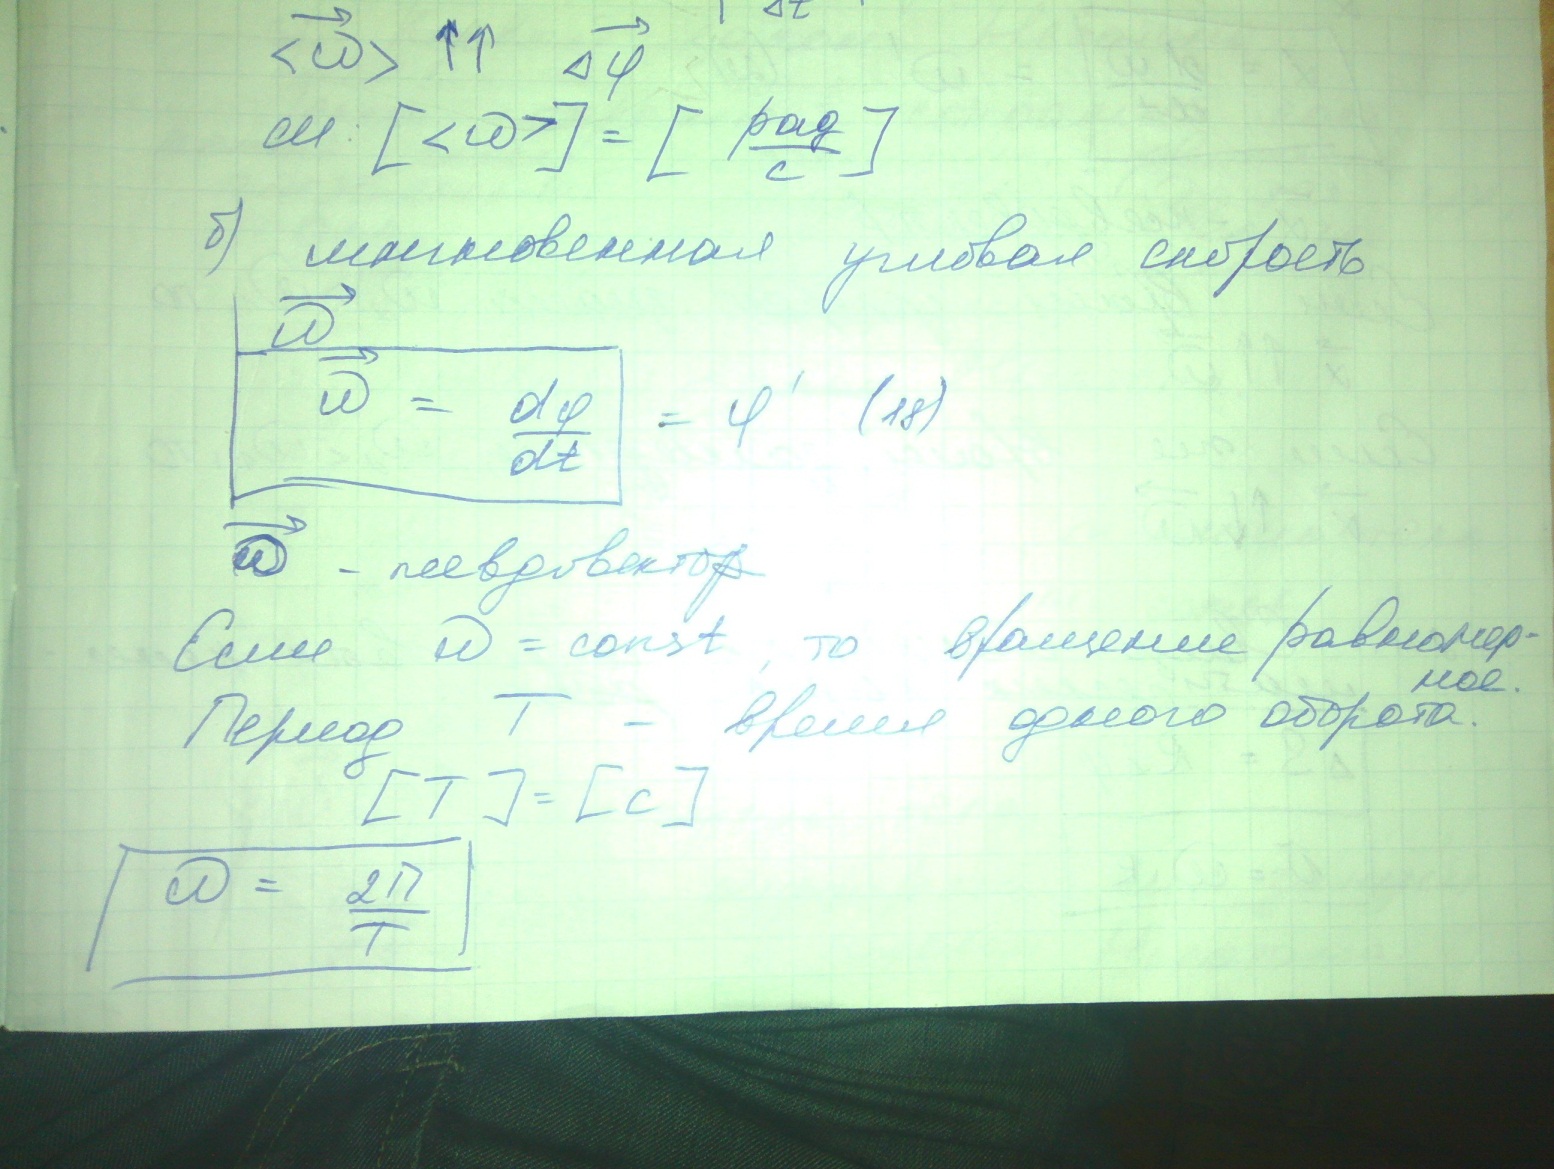 Δt
<ω⃗> ↑↑ Δφ⃗
си: [<ω>] = [рад/с]
б) мгновенная угловая скорость
ω⃗
ω⃗ = dφ/dt = φ' (18)
ω⃗ - псевдовектор
Если ω = const, то вращение равномер-
ное.
Период T - время одного оборота.
[T] = [c]
ω = 2π/T